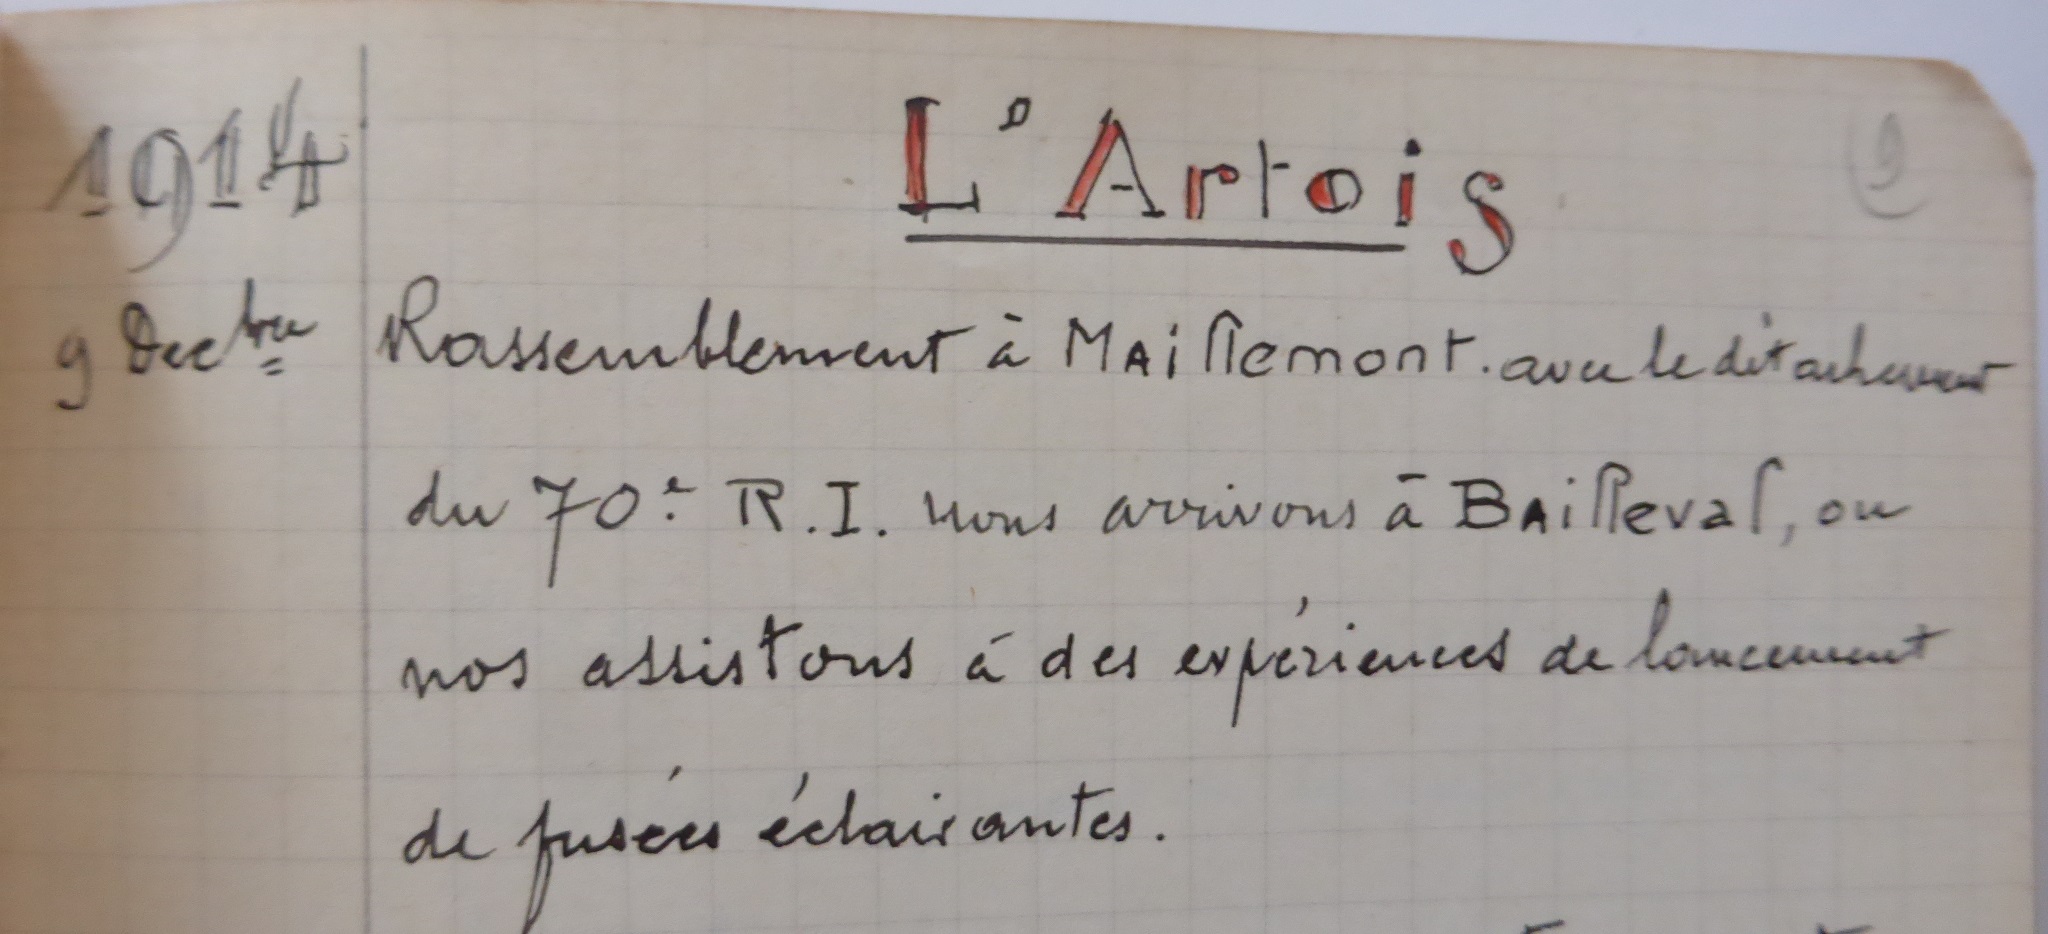 1914
L'Artois
9
9 Decbre Rassemblement à MAillemont. avec le détachement
du 70e R.I. nous arrivons à BAilleval, ou
nos assistons à des expériences de lancement
de fusées éclairantes.